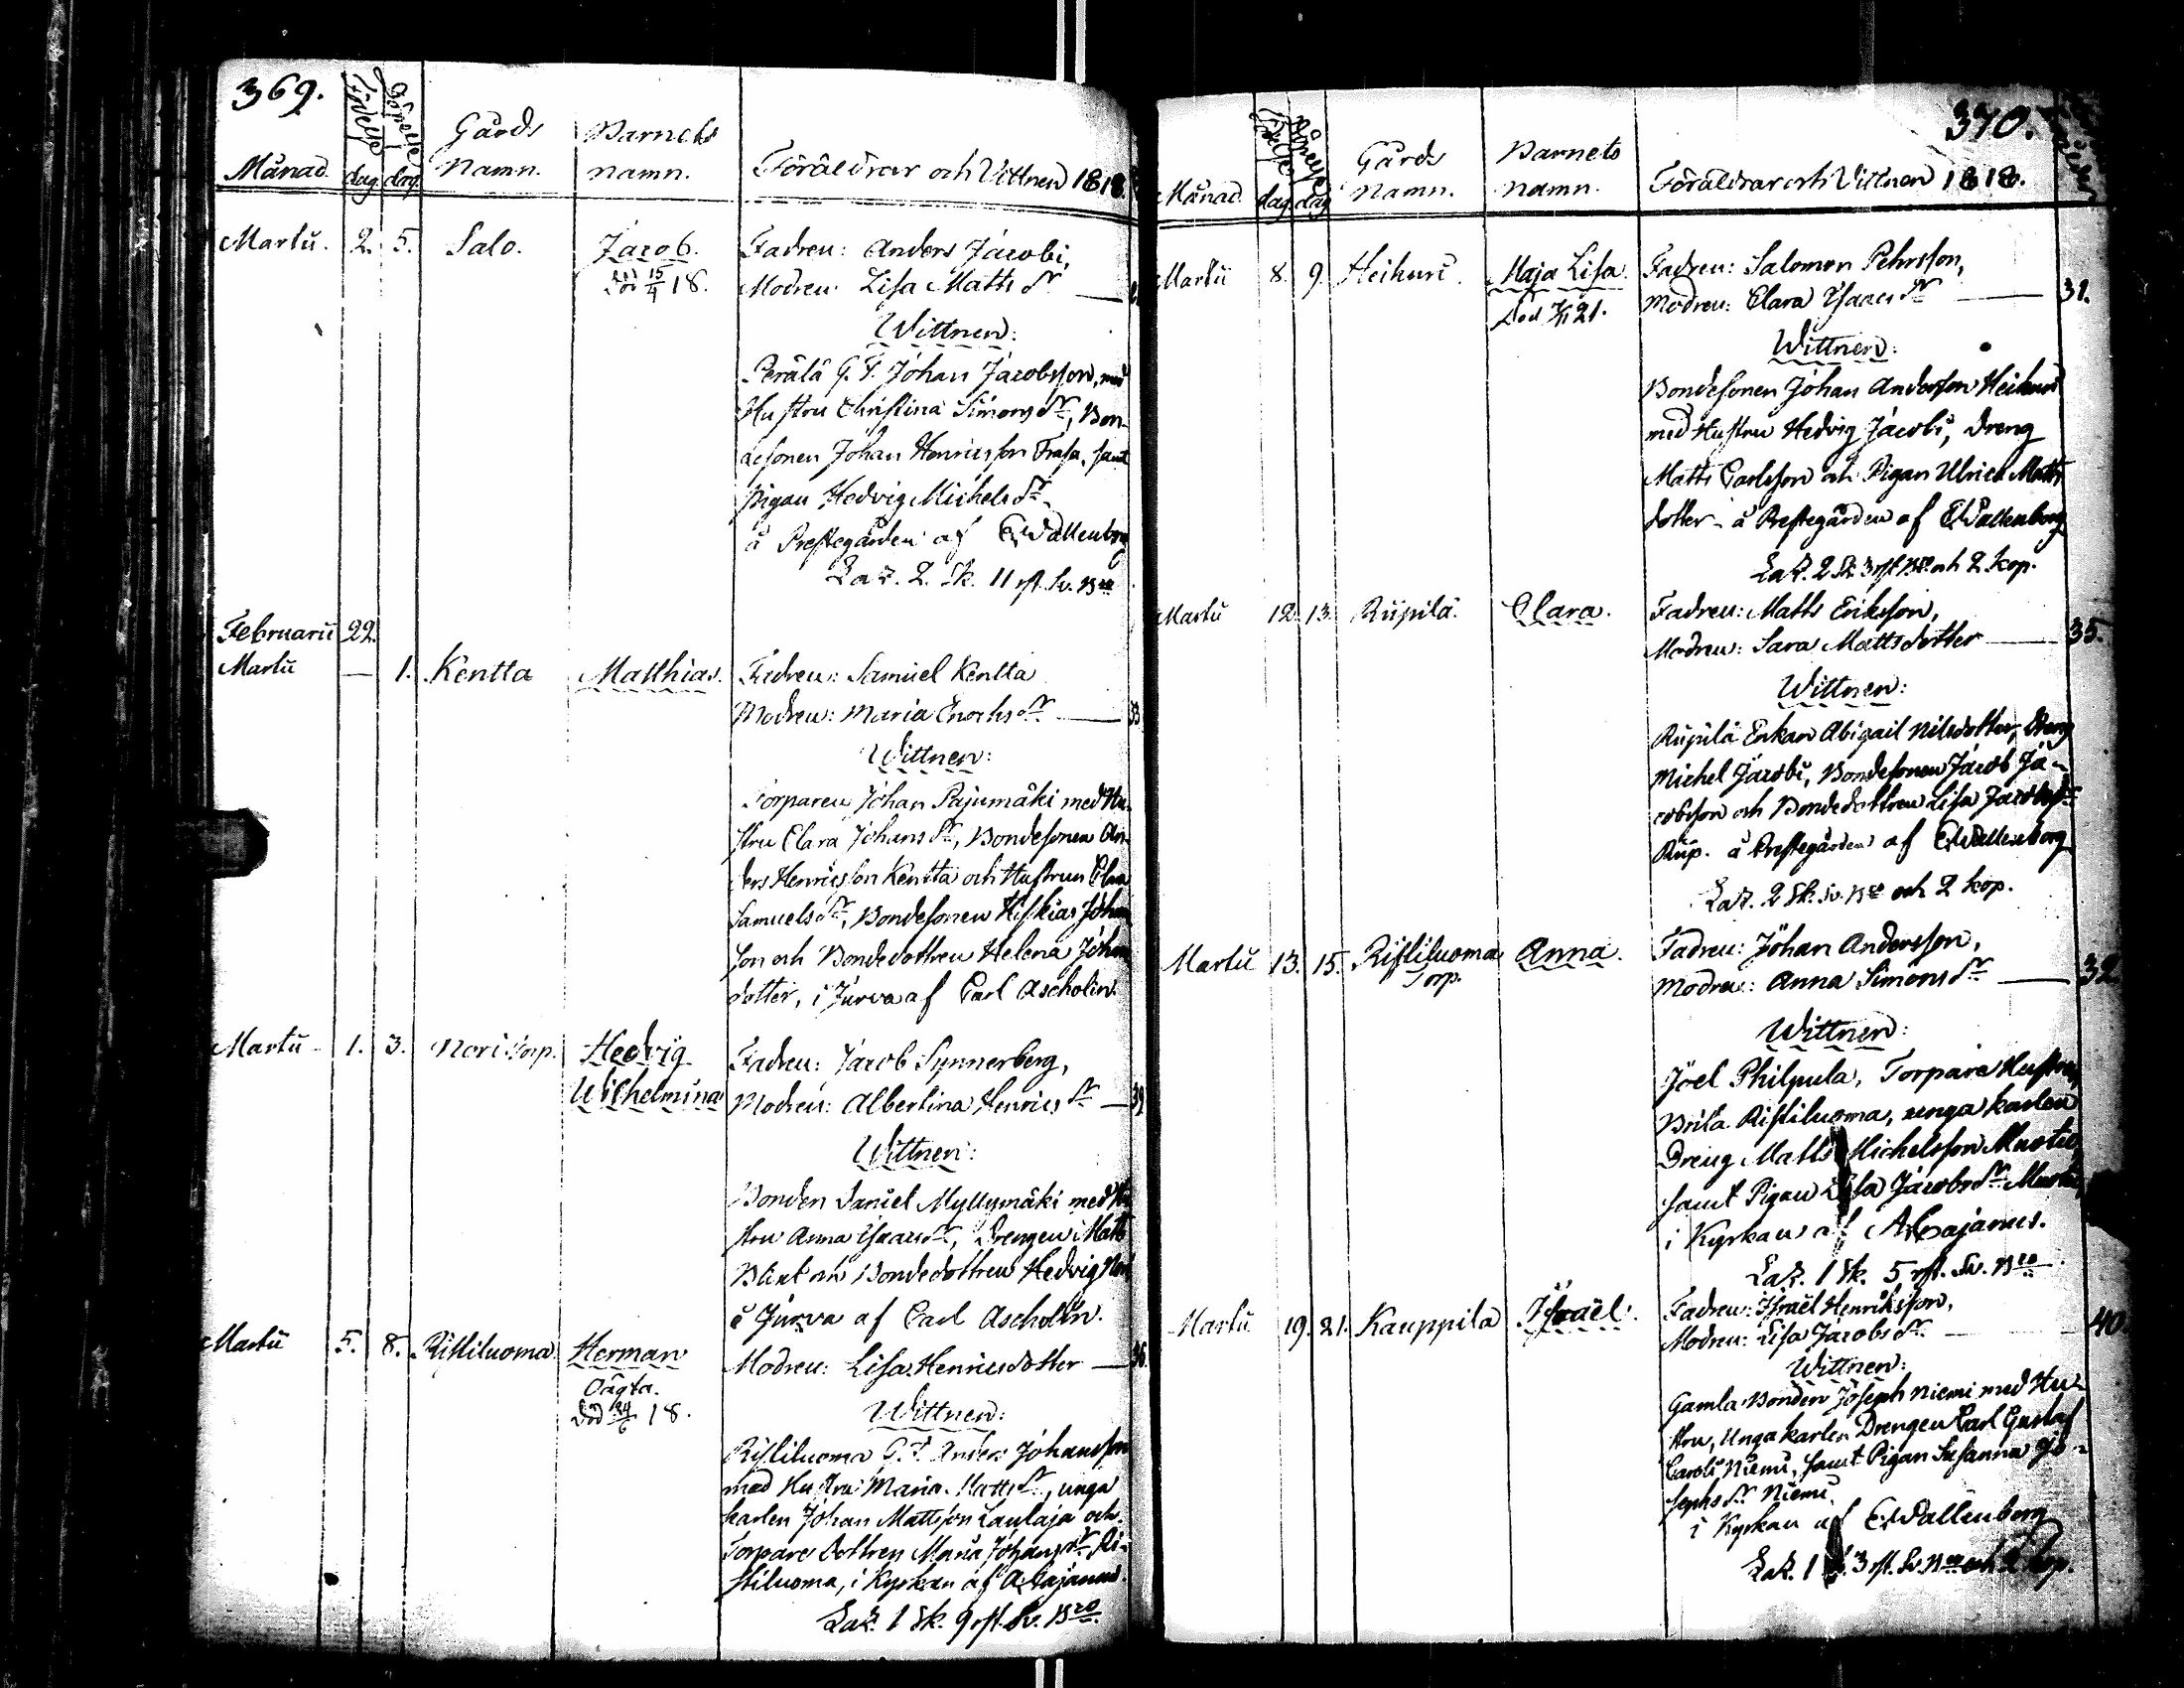 369.
Månad. Födelse dag. Döpelse dag. Gårds Namn. Barnets namn. Föräldrar och Vittnen 1818.
Martii. 2. 5. Salo. Jacob. Fadren: Anders Jacobi,
död 15/4 18. Modren: Lisa Matts dr
Wittnen:
Perälä G. F. Johan Jacobsson, med
Hustru Christina Simons dr, Bon-
desonen Johan Henricsson Frasa, samt
Pigan Hedvig Michels dr
å Prestegården af E. Wallenberg
Laz. 2. sk. 11 rst. Sv. Bco
Februarii 22.
Martii — 1. Kentta Matthias. Fadren: Samuel Kentta
Modren: Maria Enochs dr 33
Wittnen:
Torparen Johan Pajumäki med Hu-
stru Clara Johans dr, Bondesonen An-
ders Henricsson Kentta och Hustrun Clara
Samuels dr, Bondesonen Hiskias Johan
son och Bondedottren Helena Johans
dotter, i Jurva af Carl Ascholin.
Martii 1. 3. Nori Torp. Hedvig Fadren: Jacob Synnerberg,
Wilhelmina Modren: Albertina Henrics dr 39
Wittnen:
Bonden Daniel Myllymäki med Hu
stru Anna Isaacs dr, Drengen Matts
Blixt och Bondedottren Hedvig Nori
i Jurva af Carl Ascholin.
Martii 5. 8. Ristiluoma Herman Modren: Lisa Henricsdotter 36
Oägta.
död 24/6 18.
Wittnen:
Ristiluoma G. F. Anders Johansson
med Hustru Maria Matts dr, unga
karlen Johan Mattsson Laulaja och
Torpare dottren Maria Johans dr Ri-
stiluoma, i Kyrkan af A. Cajanus.
Laz. 1 sk. 9 rst. Sv. Bco.
370.
Månad. Födelse dag. Döpelse dag Gårds Namn. Barnets namn. Föräldrar och Vittnen 1818.
Martii 8. 9. Heikuri. Maja Lisa. Fadren: Salomon Pehrsson,
Död 21. Modren: Clara Isaacs dr 31.
Wittnen:
Bondesonen Johan Andersson Heikuri
med Hustru Hedvig Jacobi, Dreng
Matts Carlsson och Pigan Ulrica Matts
dotter å Prestegården af E. Wallenberg
Laz. 2 sk. 3 rst. Bco. och 2 kop.
Martii 12. 13. Riipilä. Clara. Fadren: Matts Eriksson,
Modren: Sara Mattsdotter 35.
Wittnen:
Riipilä Enkan Abigail Nilsdotter, Dreng
Michel Jacobi, Bondesonen Jacob Ja-
cobsson och Bondedottren Lisa Jacobs dr
Riip. å Prestegården af E. Wallenberg
Laz. 2 sk. Sv. Bco och 2 kop.
Martii 13. 15. Ristiluoma Anna. Fadren: Johan Andersson,
Torp. Modren: Anna Simons dr 32
Wittnen:
Joel Philpula, Torpare Hustrun
Brita Ristiluoma, unga karlen
Dreng Matts Michelsson Mustio,
samt Pigan Lisa Jacobs dr Mustio,
i Kyrkan af A. Cajanus.
Laz. 1 sk. 5 rst. Sv. Bco.
Martii 19. 21. Kauppila Israël. Fadren: Israël Henriksson,
Modren: Lisa Jacobs dr 40.
Wittnen:
Gamla Bonden Joseph Niemi med Hu-
stru, Unga karlen Drengen Carl Gustaf
Caroli Niemi, samt Pigan Susanna Jo-
sephs dr Niemi.
i Kyrkan af E. Wallenberg
Laz. 1 sk. 3 rst. Sv. Bco och 2 kop.